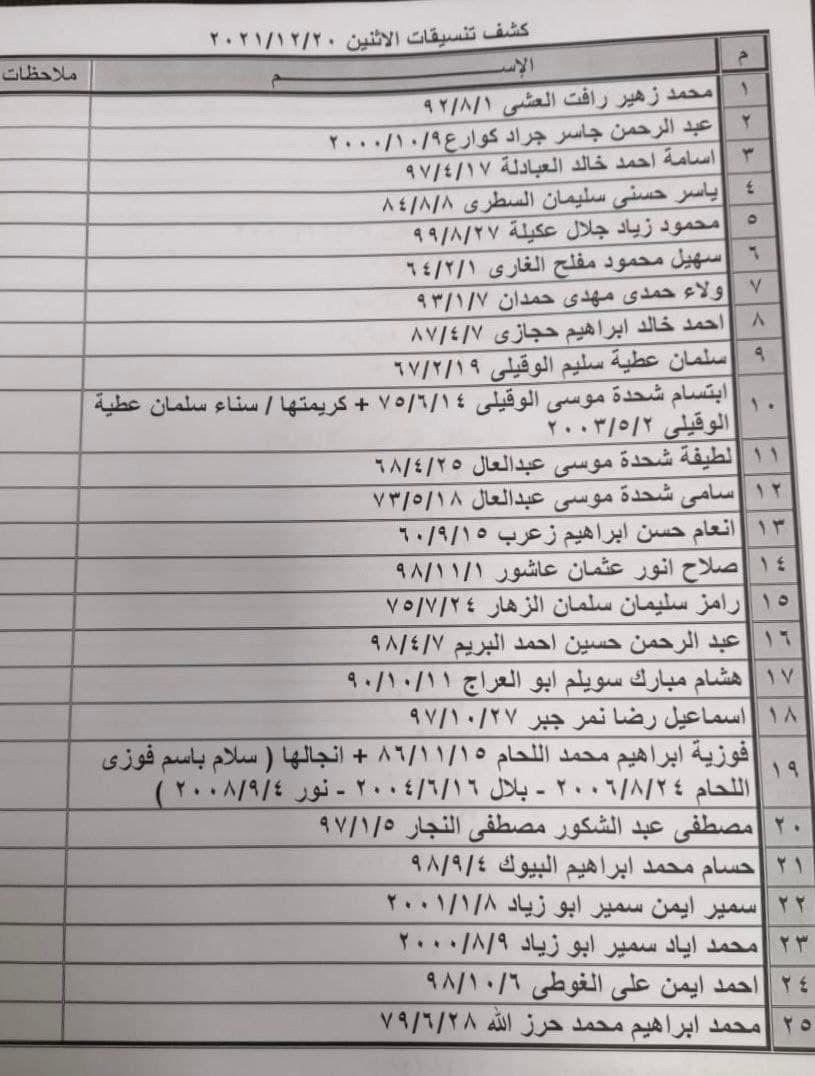 كشف تنسيقات الاثنين ٢٠٢١/١٢/٢٠
م الإســــــــــم ملاحظات
١ محمد زهير رافت العشى ٩٢/٨/١
٢ عبد الرحمن جاسر جراد كوارع ٢٠٠٠/١٠/٩
٣ اسامة احمد خالد العبادلة ٩٧/٤/١٧
٤ ياسر حسنى سليمان السطرى ٨٤/٨/٨
٥ محمود زياد جلال عكيلة ٩٩/٨/٢٧
٦ سهيل محمود مفلح الغارى ٦٤/٢/١
٧ ولاء حمدى مهدى حمدان ٩٣/١/٧
٨ احمد خالد ابراهيم حجازى ٨٧/٤/٧
٩ سلمان عطية سليم الوقيلى ٦٧/٢/١٩
١٠ ابتسام شحدة موسى الوقيلى ٧٥/٦/١٤ + كريمتها / سناء سلمان عطية
الوقيلى ٢٠٠٣/٥/٢
١١ لطيفة شحدة موسى عبدالعال ٦٨/٤/٢٥
١٢ سامى شحدة موسى عبدالعال ٧٣/٥/١٨
١٣ انعام حسن ابراهيم زعرب ٦٠/٩/١٥
١٤ صلاح انور عثمان عاشور ٩٨/١١/١
١٥ رامز سليمان سلمان الزهار ٧٥/٧/٢٤
١٦ عبد الرحمن حسين احمد البريم ٩٨/٤/٧
١٧ هشام مبارك سويلم ابو العراج ٩٠/١٠/١١
١٨ اسماعيل رضا نمر جبر ٩٧/١٠/٢٧
١٩ فوزية ابراهيم محمد اللحام ٨٦/١١/١٥ + انجالها ( سلام باسم فوزى
اللحام ٢٠٠٦/٨/٢٤ - بلال ٢٠٠٤/٦/١٦ - نور ٢٠٠٨/٩/٤ )
٢٠ مصطفى عبد الشكور مصطفى النجار ٩٧/١/٥
٢١ حسام محمد ابراهيم البيوك ٩٨/٩/٤
٢٢ سمير ايمن سمير ابو زياد ٢٠٠١/١/٨
٢٣ محمد اياد سمير ابو زياد ٢٠٠٠/٨/٩
٢٤ احمد ايمن على الغوطى ٩٨/١٠/٦
٢٥ محمد ابراهيم محمد حرز الله ٧٩/٦/٢٨